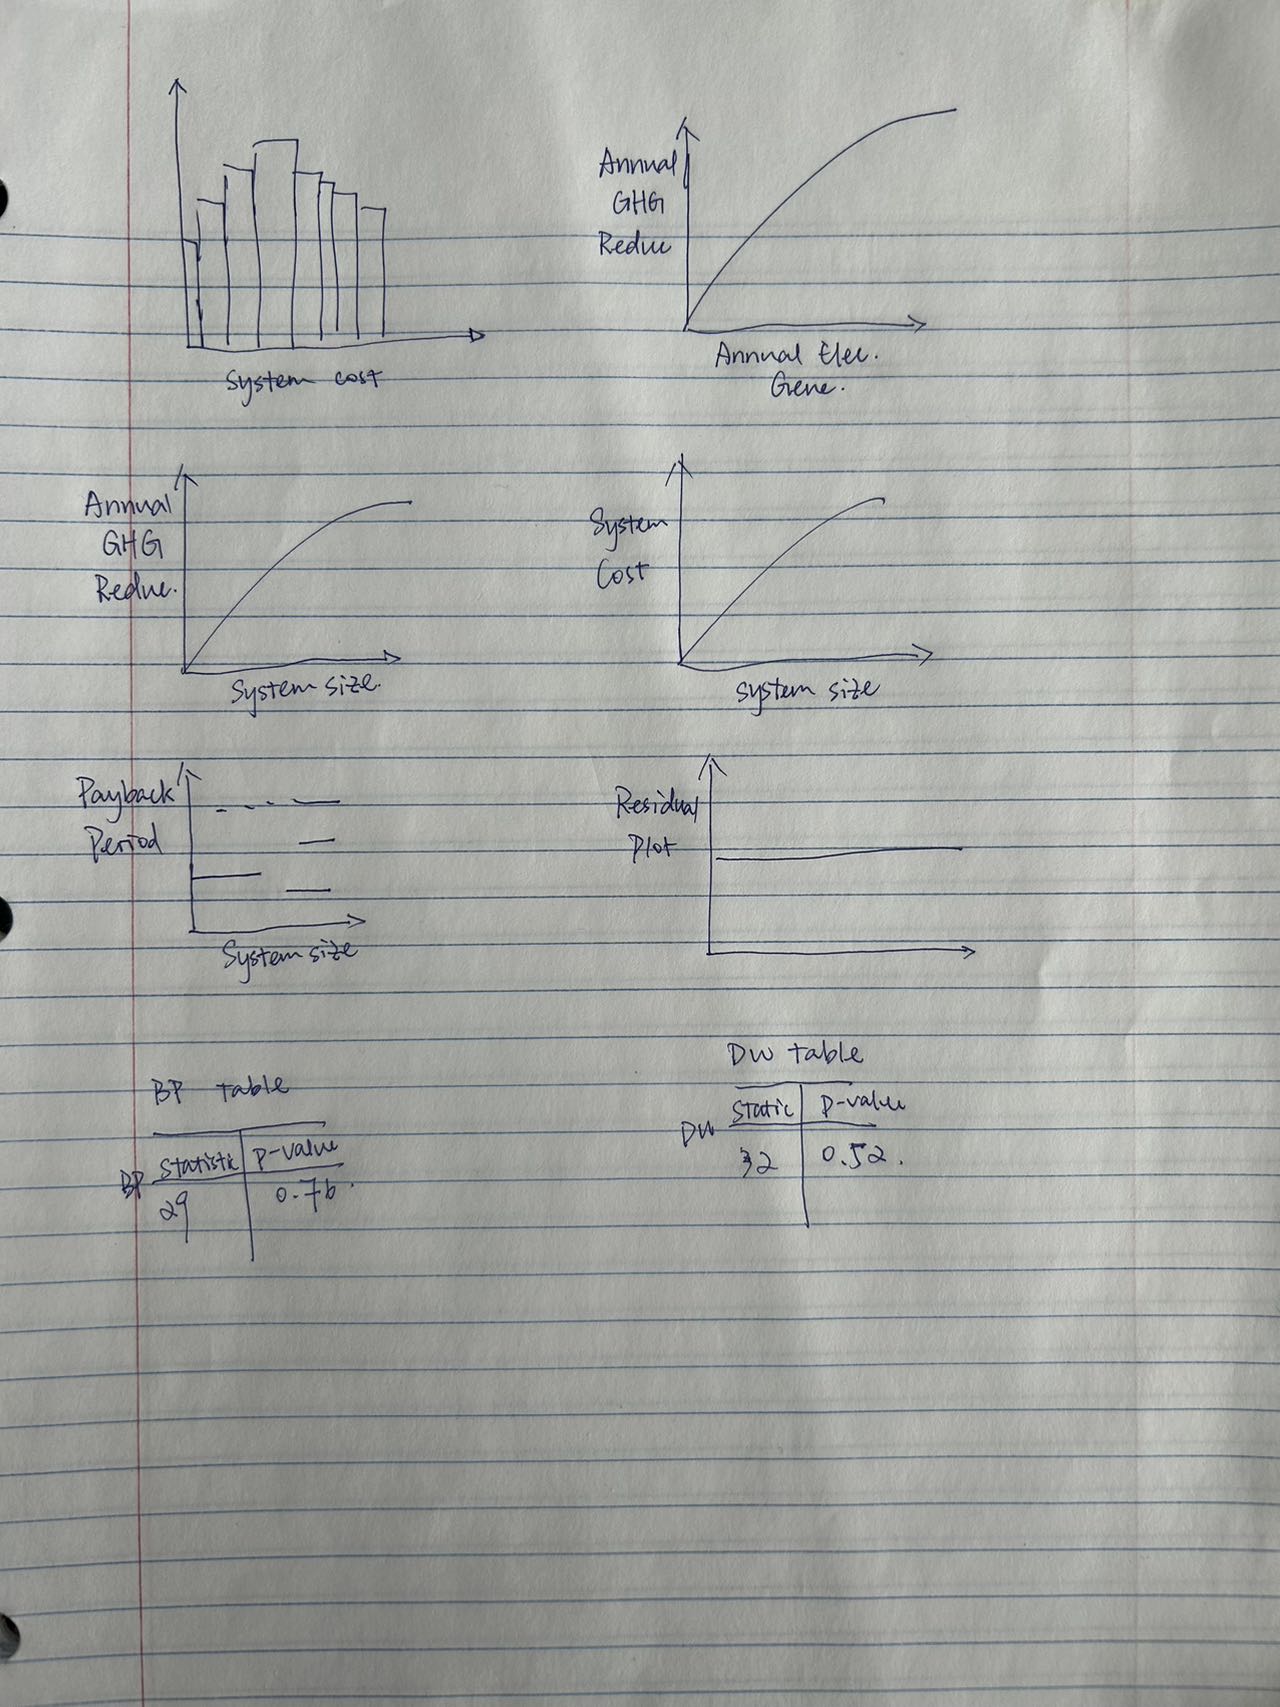 System cost
Annual
GHG
Reduc
Annual Elec.
Gene.
Annual
GHG
Reduc.
System size.
System
Cost
System size
Payback
Period
System size
Residual
Plot
BP table
Statistic P-value
BP
29 0.76.
DW table
Static P-value
DW
32 0.52.